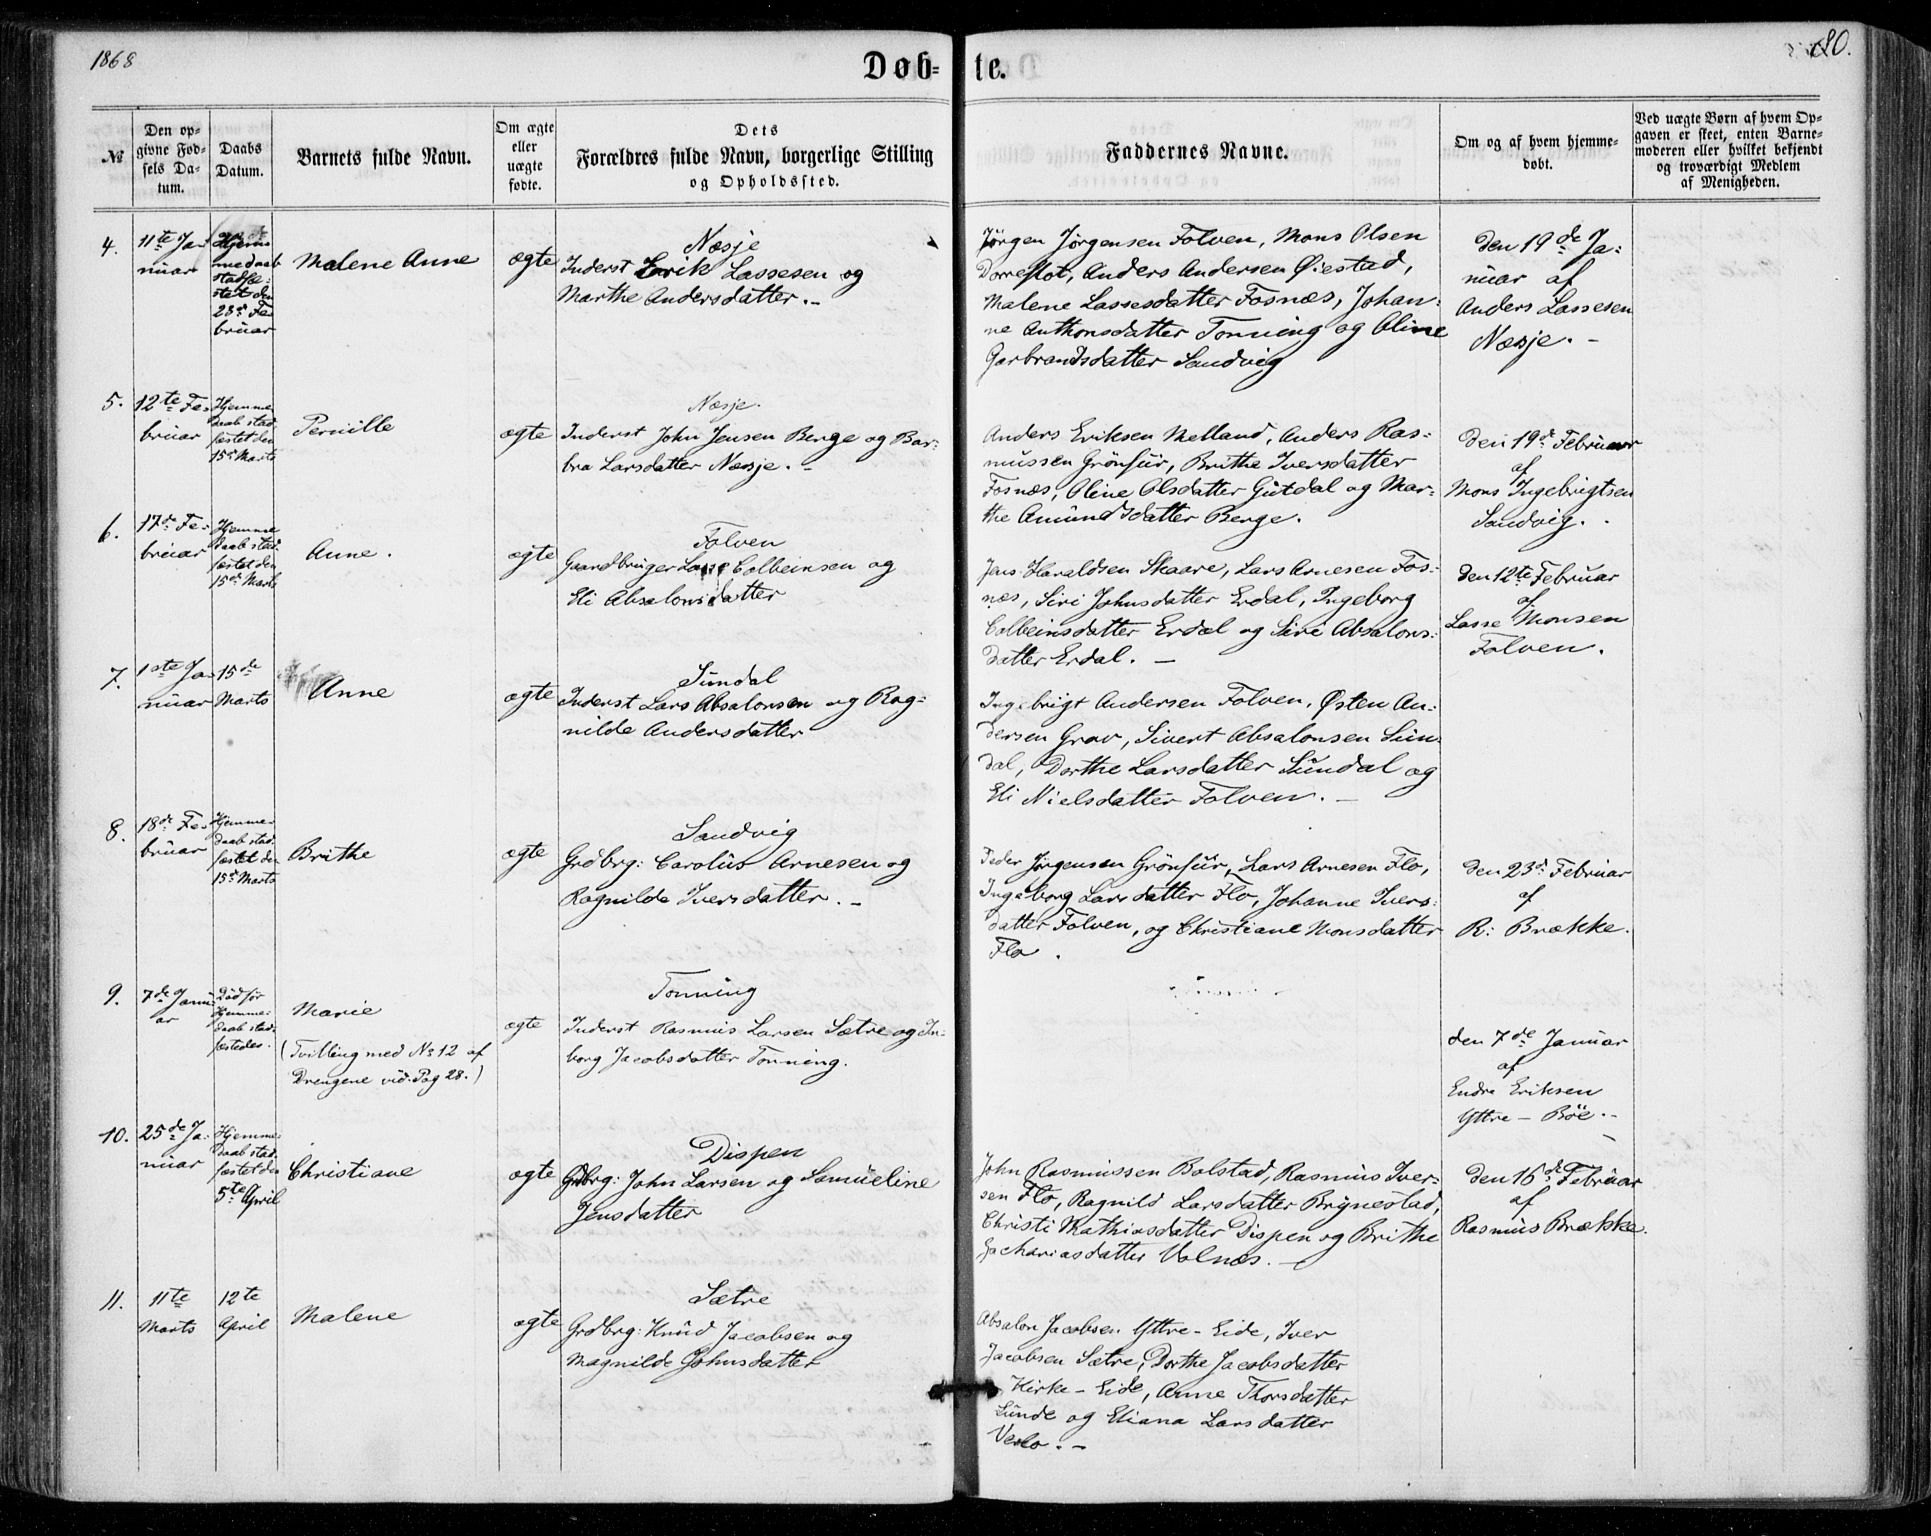 1868
Døb-
te.
80.
№
Den op-
givne Fød-
sels Da-
tum.
Daabs
Datum.
Barnets fulde Navn.
Om ægte
eller
uægte
fødte.
Dets
Forældres fulde Navn, borgerlige Stilling
og Opholdssted.
Faddernes Navne.
Om og af hvem hjemme-
døbt.
Ved uægte Børn af hvem Op-
gaven er skeet, enten Barne-
moderen eller hvilket bekjendt
og troværdigt Medlem
af Menigheden.
4.
11te Ja-
nuar
Hjem-
medaab
stadfæ-
stet den
23de Fe-
bruar
Malene Anne
ægte
Næsje
Inderst Lassesen og
Marthe Andersdatter. -
Jørgen Jørgensen Folven, Mons Olsen
Dorreflot, Anders Andersen Øiestad,
Malene Lassesdatter Fosnæs, Johan-
ne Anthonsdatter Tonning og Oline
Garbrandsdatter Sandvig
Den 19de Ja-
nuar af
Anders Lassesen
Næsje. -
5.
12te Fe-
bruar
Hjemme-
daab stad-
fæstet den
15de Marts
Pernille
ægte
Næsje.
Inderst John Jensen Berge og Bar-
bra Larsdatter Næsje. -
Anders Eriksen Melland, Anders Ras-
mussen Grönfur, Brithe Iversdatter
Fosnæs, Oline Olsdatter Gütdal og Mar-
the Amundsdatter Berge.
Den 19de Februar
af
Mons Ingebrigtsen
Sandvig.
6.
17de Fe-
bruar
Hjemme-
daab stad-
fæstet den
15de Marts
Anne.
ægte
Folven
Gaardbruger Lasse Colbeinsen og
Eli Absalonsdatter
Jens Haraldsen Skaare, Lars Arnesen Fos-
næs, Siri Johnsdatter Erdal, Ingeborg
Colbeinsdatter Erdal og Siri Absalons-
datter Erdal. -
Den 12te Februar
af
Lasse Monsen
Folven.
7.
1ste Ja-
nuar
15de
Marts
Anne
ægte
Sundal
Inderst Lars Absalonsen og Rag-
nilde Andersdatter
Ingebrigt Andersen Folven, Østen An-
dersen Grov, Sivert Absalonsen Sun-
dal, Dorthe Larsdatter Sundal og
Eli Nielsdatter Folven. -
8.
18de Fe-
bruar
Hjemme-
daab stad-
fæstet den
15de Marts
Brithe
ægte
Sandvig
Grdbrg: Carolus Arnesen og
Ragnilde Iversdatter. -
Peder Jørgensen Grönfur, Lars Arnesen Flo,
Ingeborg Larsdatter Flo, Johanne Ivers-
datter Folven, og Christiane Monsdatter
Flo.
Den 23de Februar
af
R: Brække.
9.
7de Janu-
ar
Död för
Hjemme-
daab stad-
fæstedes.
Marie
(Tvilling med No 12 af
Drengene vid. Pag 28.)
ægte
Tonning
Inderst Rasmus Larsen Sætre og In-
borg Jacobsdatter Tonning.
den 7de Januar
af
Endre Eriksen
Yttre - Böe. -
10.
25de Ja-
nuar
Hjemme-
daab stad-
fæstet den
5te April
Christiane
ægte
Dispen
Grdbrg: John Larsen og Samueline
Jensdatter
John Rasmussen Bolstad, Rasmus Iver-
sen Flo, Ragnild Larsdatter Brynestad,
Christi Mathiasdatter Dispen og Brithe
Zachariasdatter Volnæs. -
Den 16de Februar
af
Rasmus Brække.
11.
11te
Marts
12te
April
Malene
ægte
Sætre
Grdbrg: Knud Jacobsen og
Magnilde Johnsdatter
Absalon Jacobsen Yttre-Eide, Iver
Jacobsen Sætre, Dorthe Jacobsdatter
Kirke-Eide, Anne Thorsdatter
Sunde og Eliana Larsdatter
Veslo. -